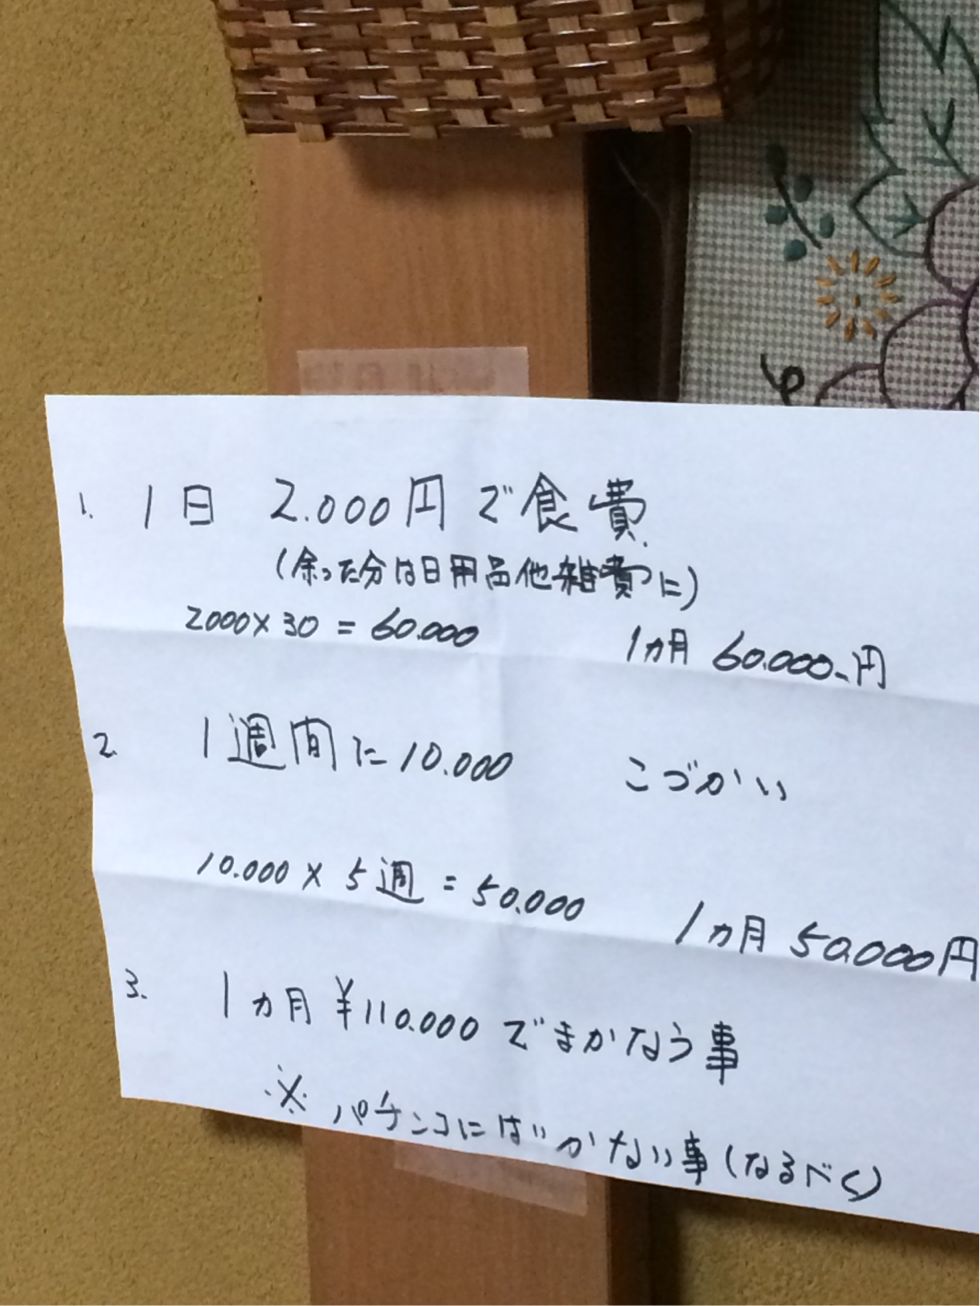 1. 1日 2.000円で食費
(余った分は日用品他雑費に)
2000×30=60.000 1カ月 60.000円
2. 1週間に10.000 こづかい
10.000×5週=50.000 1カ月 50.000円
3. 1カ月¥110.000でまかなう事
※パチンコにはいかない事(なるべく)